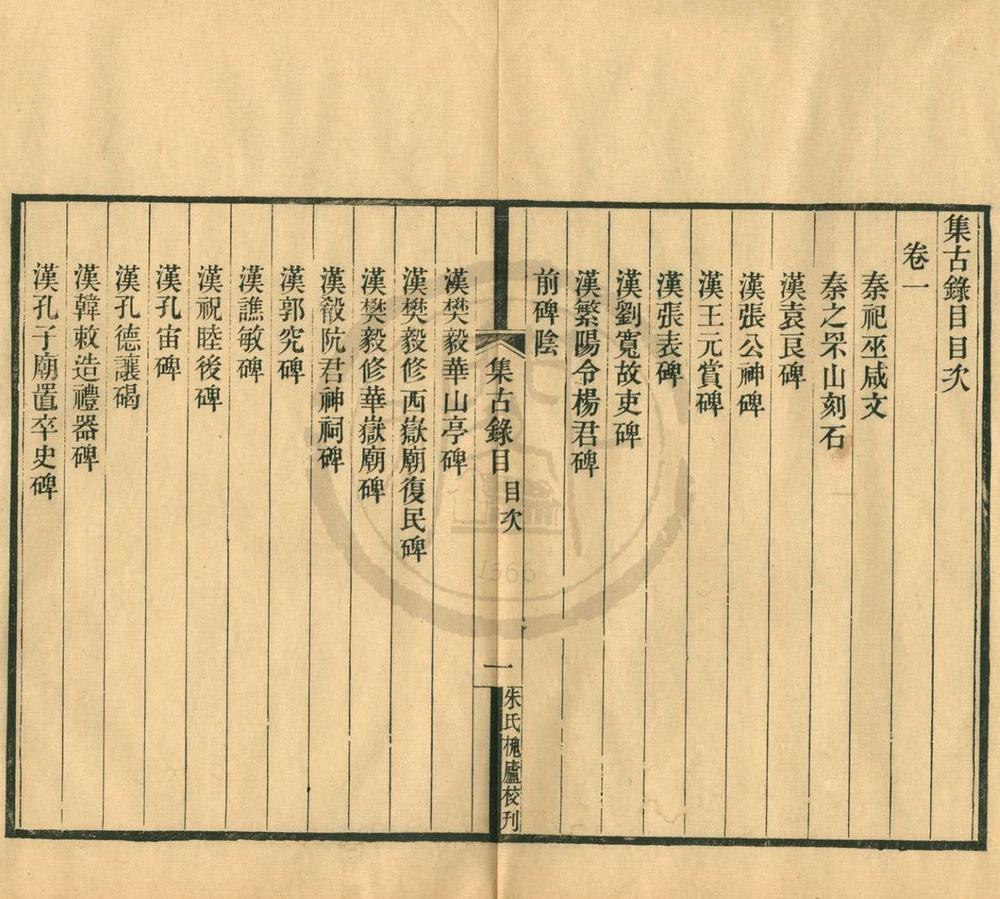 集古錄目目次
卷一
秦祀巫咸文
秦之罘山刻石
漢袁良碑
漢張公神碑
漢王元賞碑
漢張表碑
漢劉寬故吏碑
漢繁陽令楊君碑
前碑陰
集古錄目 目次
一
朱氏槐廬校刊
漢樊毅華山亭碑
漢樊毅修西嶽廟復民碑
漢樊毅修華嶽廟碑
漢殽阬君神祠碑
漢郭究碑
漢譙敏碑
漢祝睦後碑
漢孔宙碑
漢孔德讓碣
漢韓敕造禮器碑
漢孔子廟置卒史碑
1566